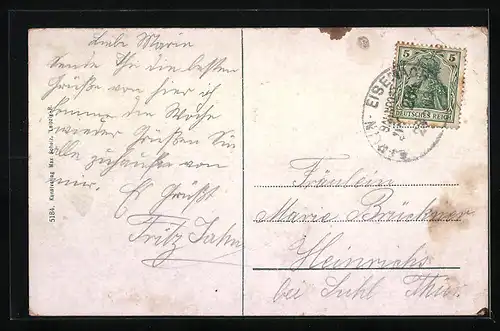 Liebe Marie
Sende Dir die besten
Grüße von hier ich
komme die Woche
wieder Grüßen Sie
alle zuhause von
mir.
Es Grüßt
Fritz Jahn
5184. Kunstverlag Max Scholz, Leipzig
5 5
DEUTSCHES REICH
EISEN
Fräulein
Marie Brückner
Heinrichs
bei Suhl Thür.